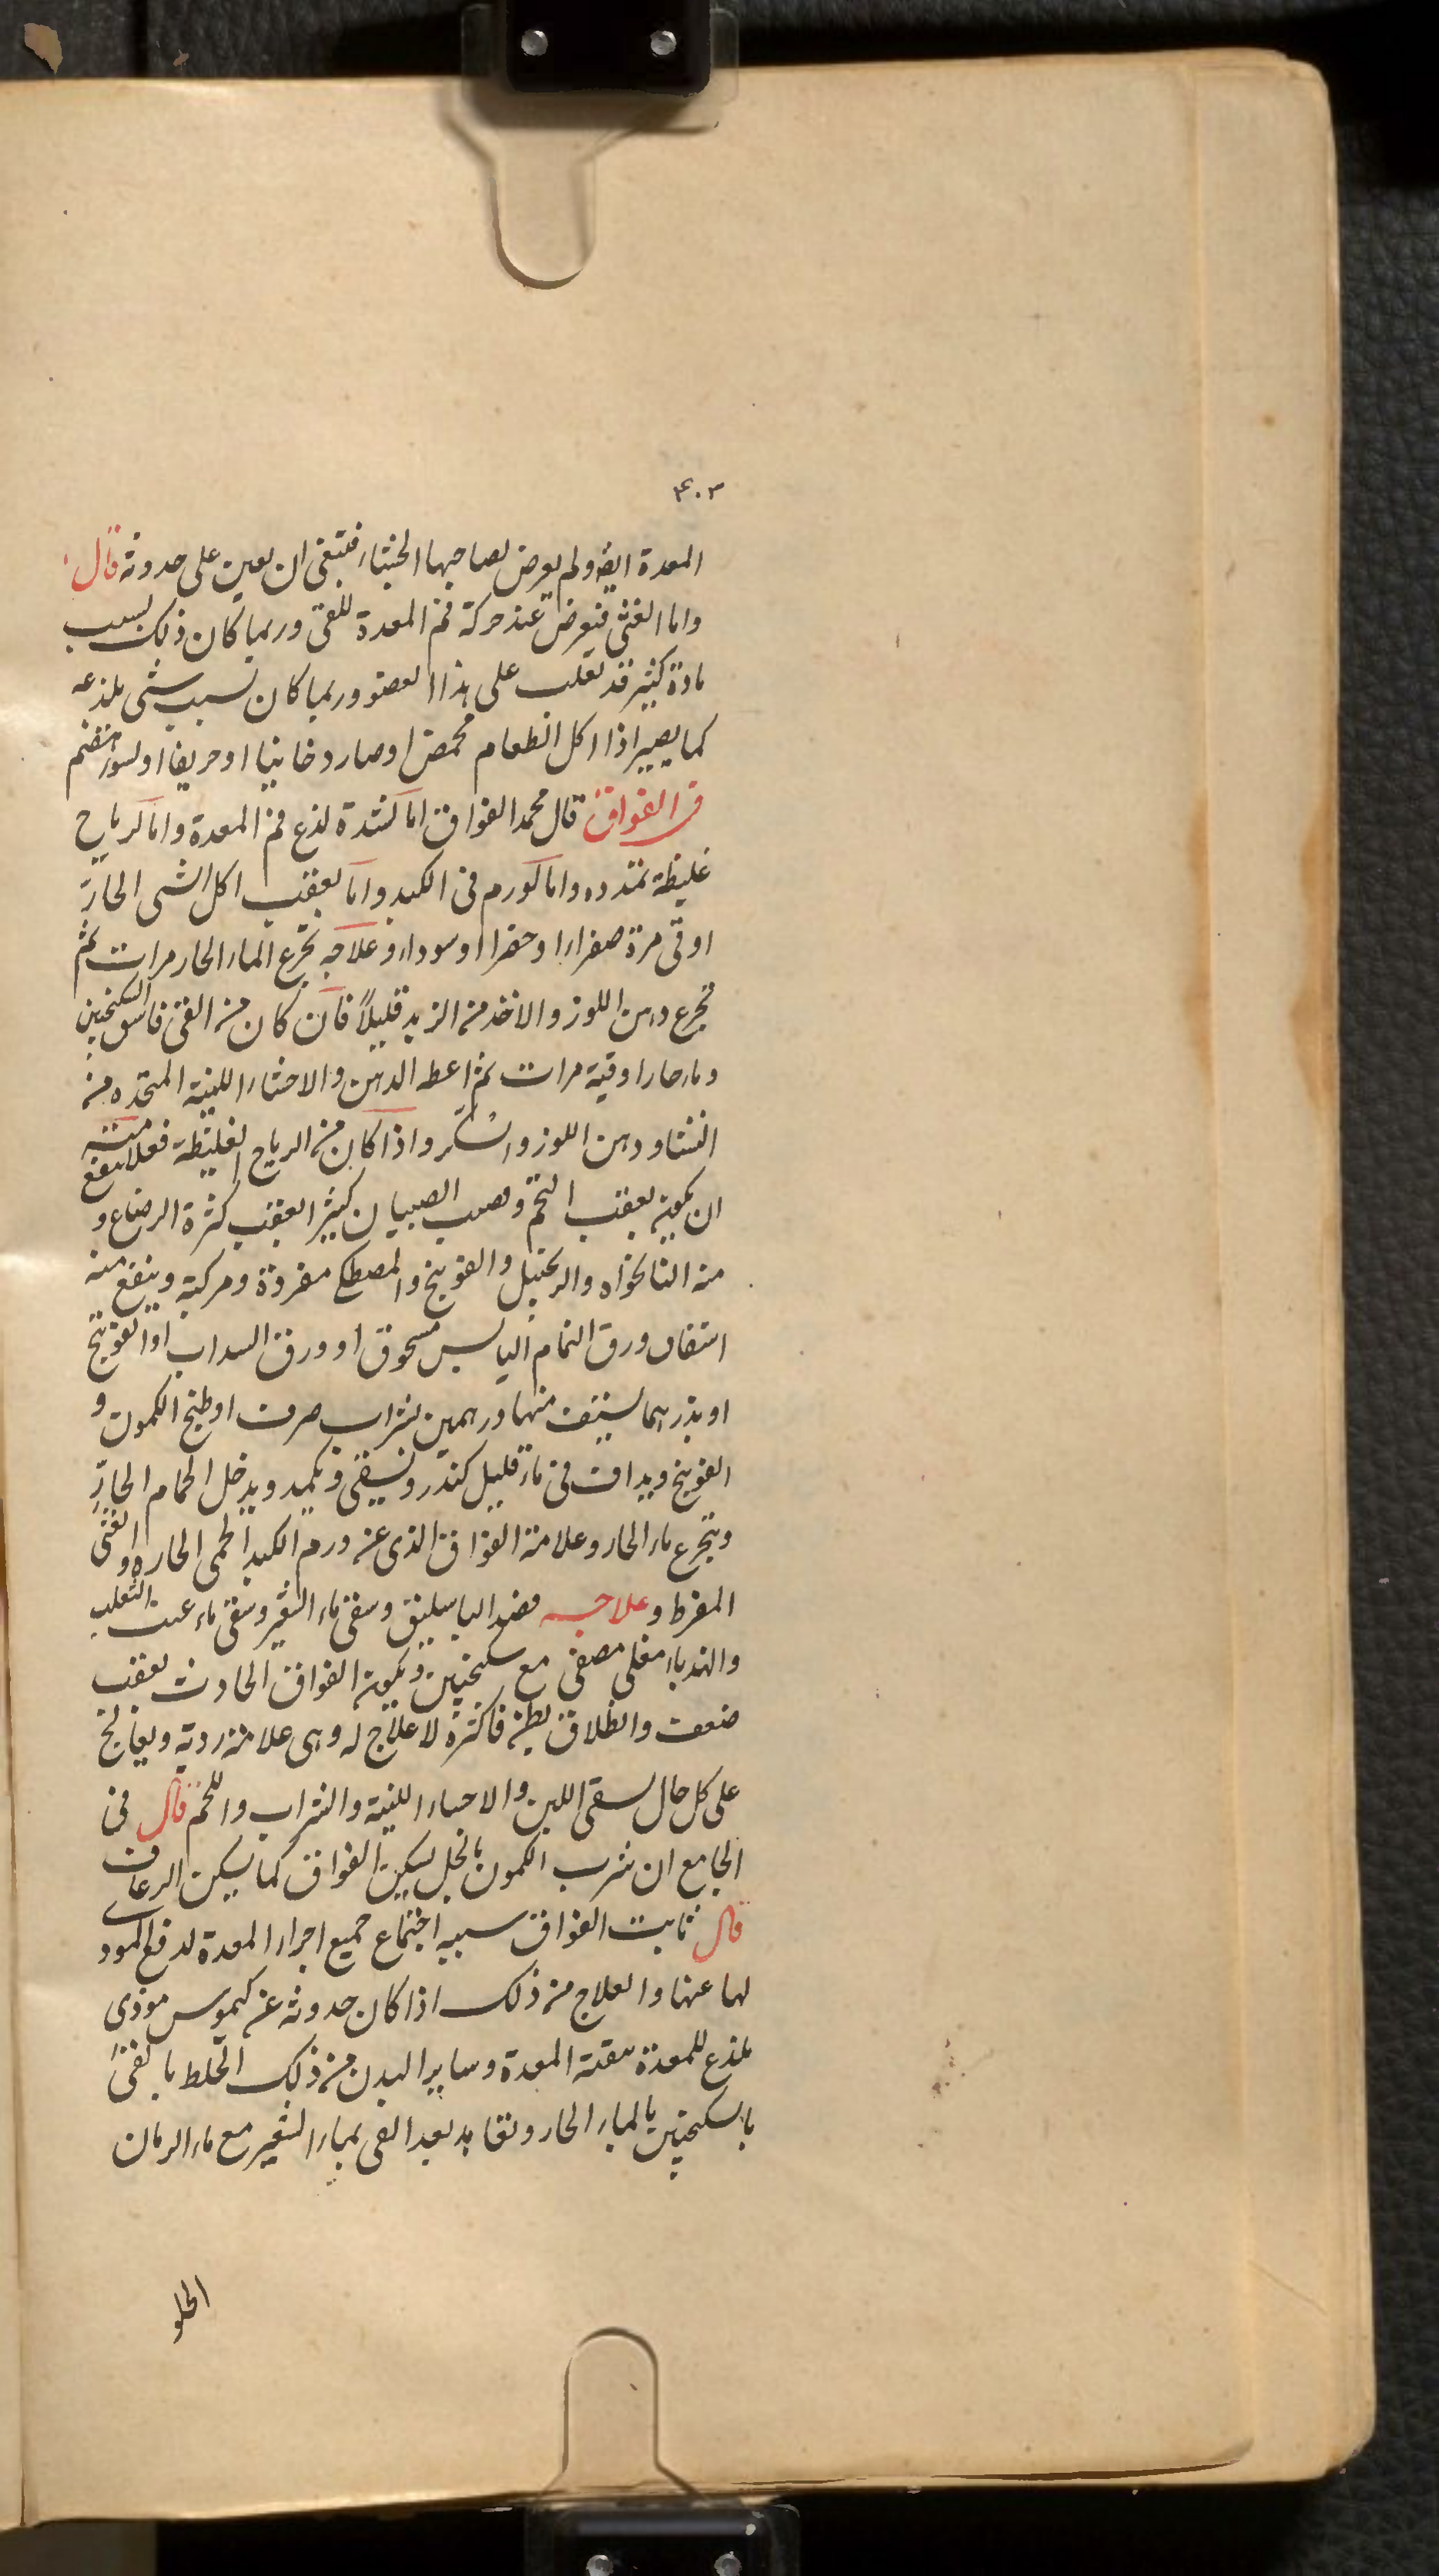 ۴۰۳
المعدة ايضا ولم يعرض لصاحبها الجشاء فينبغى ان يعين على حدوثه قال
واما الغثى فيعرض عند حركة فم المعدة للقئ وربما كان ذلك بسبب
مادة كثير قد تغلب على هذا العضو وربما كان بسبب شئ يلذعه
كما يصير اذا اكل الطعام محمض او صار دخانيا او حريفا او لسوء هضم
فى الفواق قال محمد الفواق اما لشدة لذع فم المعدة واما لرياح
غليظة تمدده واما لورم فى الكبد واما بعقب اكل الشئ الحار
او قئ مرة صفراء او خضراء او سوداء وعلاجه تجرع الماء الحار مرات ثم
تجرع دهن اللوز والاخذ من الزبد قليلاً فان كان من القئ فاسق السكنجبين
وماء حار اوقية مرات ثم اعط الدهن والاحشاء اللينة المتخذه من
النشا ودهن اللوز والسكر واذا كان من الرياح الغليظة فعلامته
ان يكون بعقب التخم ويصيب الصبيان كثيرا بعقب كثرة الرضاع و ينفع
منه النانخواه والزنجبيل والفوينج والمصطكى مفردة ومركبة وينفع منه
استفاف ورق النمام اليابس مسحوق او ورق السداب او الفوينج
او بذرهما يستف منها درهمين بشراب صرف او طبخ الكمون و
الفوينج ويداف فى ماء قليل كندر ويسقى ويكمد ويدخل الحمام الحار
ويتجرع ماء الحار وعلامة الفواق الذى عن ورم الكبد الحمى الحاره والغثى
المفرط وعلاجه فصد الباسليق وسقى ماء الشعير وسقى ماء عنب الثعلب
والهندباء مغلى مصفى مع سكنجبين ويكون الفواق الحادث بعقب
ضعف وانطلاق بطن فاكثره لا علاج له وهى علامة ردية ويعالج
على كل حال بسقى اللبن والاحساء اللينة والشراب واللحم قال فى
الجامع ان شرب الكمون بالخل يسكن الفواق كما يسكن الرعاف
قال ثابت الفواق سببه اجتماع جميع اجزاء المعدة لدفع الموذى
لها عنها والعلاج من ذلك اذا كان حدوثه عن كيموس موذى
يلذع للمعدة تنقية المعدة وساير البدن من ذلك الخلط بالقئ
بالسكنجبين بالماء الحار ونقا بعد القى بماء الشعير مع ماء الرمان
الحلو